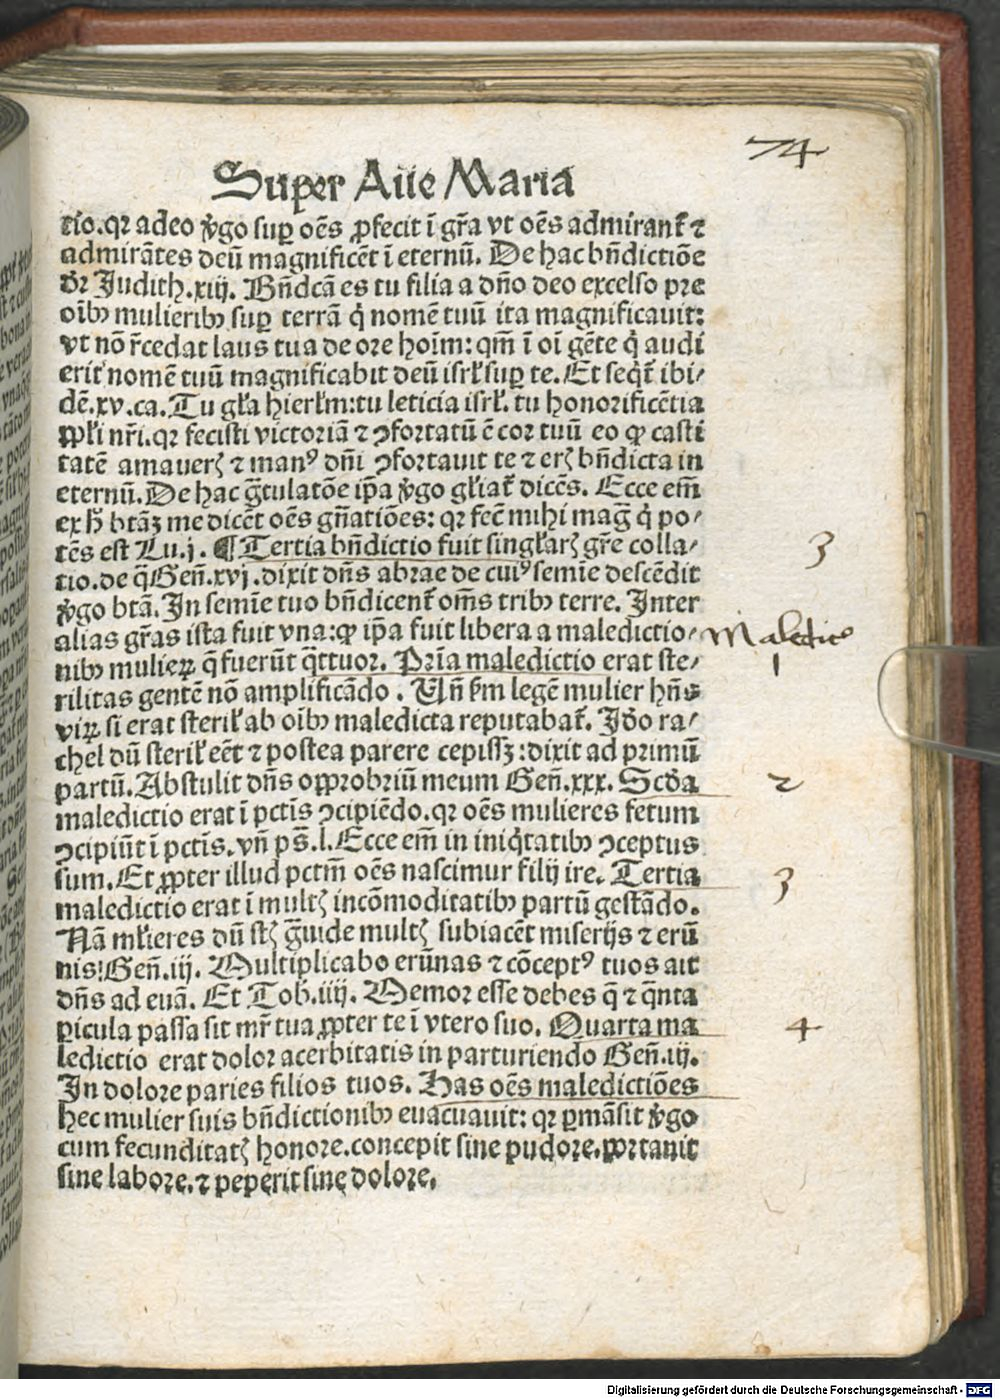 74
Super Aue Maria
tio.qꝛ adeo ꝟgo suꝑ oēs ꝓfecit ī gr̄a vt oēs admirant᷑ ⁊
admirātes deū magnificēt ī eternū. De hac bn̄dictiōe
dr̄ Judith.xiij. Bn̄dcā es tu filia a dn̄o deo excelso pre
oībꝫ mulieribꝫ suꝑ terrā q̇ nomē tuū ita magnificauit:
vt nō r̄cedat laus tua de ore hoīm: qm̄ ī oi gēte q̇ audi
erit nomē tuū magnificabit deū isrł suꝑ te. Et seq̇t᷑ ibi/
dē.xv.ca. Tu gła hierłm: tu leticia isrł. tu honorificētia
ppłi nr̄i.qꝛ fecisti victoriā ⁊ ꝯfortatū ē cor tuū eo ꝙ casti
tatē amauerꝭ ⁊ manꝰ dn̄i ꝯfortauit te ⁊ erꝭ bn̄dicta in
eternū. De hac gr̄tulatōe ip̄a ꝟgo głiat᷑ dicēs. Ecce em̄
ex h̄ btāꝫ me dicēt oēs gn̄atiōes: qꝛ fec̄ mihi maḡ q̇ po/
tēs est Lu.j. ¶ Tertia bn̄dictio fuit singłarꝭ gr̄e colla/ 3
tio.de q̄ Gen̄.xvj.dixit dn̄s abrae de cuiꝰ semīe descēdit
ꝟgo btā. In semīe tuo bn̄dicent᷑ om̄s tribꝫ terre. Inter
alias gr̄as ista fuit vna: ꝙ ip̄a fuit libera a maledictio/ Maledictō
nibꝫ mulieꝝ q̄ fuerūt q̄ttuor. Prīa maledictio erat ste/ 1
rilitas gentē nō amplificādo. Un̄ ẜm legē mulier hn̄s
viꝝ si erat sterił ab oībꝫ maledicta reputabat᷑. Jdo ra/
chel dū sterił eēt ⁊ postea parere cepissꝫ: dixit ad primū
partū. Abstulit dn̄s opprobriū meum Gen̄.xxx. Scd̄a 2
maledictio erat ī pctīs ꝯcipiēdo.qꝛ oēs mulieres fetum
ꝯcipiūt ī pctīs.vn̄ ps̄.l. Ecce em̄ in iniq̇tatibꝫ ꝯceptus
sum. Et ꝓpter illud pctm̄ oēs nascimur filij ire. Tertia 3
maledictio erat ī multꝭ incōmoditatibꝫ partū gestādo.
Nā młieres dū stꝭ gr̄uide multꝭ subiacēt miserijs ⁊ erū
nis! Gen̄.iij. Multiplicabo erūnas ⁊ cōceptꝰ tuos ait
dn̄s ad euā. Et Tob.iiij. Memor esse debes q̄ ⁊ q̄nta
ꝑicula passa sit mr̄ tua ꝓpter te ī vtero suo. Quarta ma 4
ledictio erat dolor acerbitatis in parturiendo Gen̄.iij.
In dolore paries filios tuos. Has oēs maledictiōes
hec mulier suis bn̄dictionibꝫ euacuauit: qꝛ ꝑmāsit ꝟgo
cum fecunditatꝭ honore.concepit sine pudore.portauit
sine labore.⁊ peperit sine dolore.
Digitalisierung gefördert durch die Deutsche Forschungsgemeinschaft - DFG